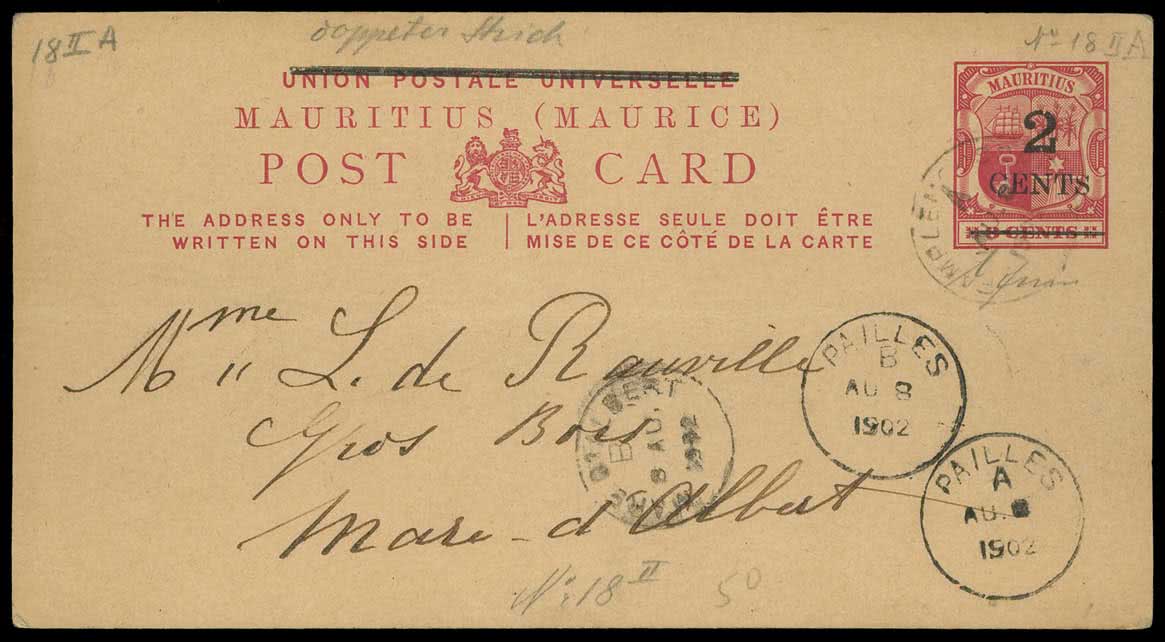 18 II A
doppelter Strich
No 18 II A
UNION POSTALE UNIVERSELLE
MAURITIUS (MAURICE)
POST CARD
THE ADDRESS ONLY TO BE
WRITTEN ON THIS SIDE
L'ADRESSE SEULE DOIT ÊTRE
MISE DE CE CÔTÉ DE LA CARTE
MAURITIUS
2
CENTS
CENTS
Mme L. de Rauville
Gros Bois
Mare d'Albert
PAILLES
B
AU 8
1902
D'ALBERT
B
8 AU.
PAILLES
A
AU. 8
1902
No 18 II
50